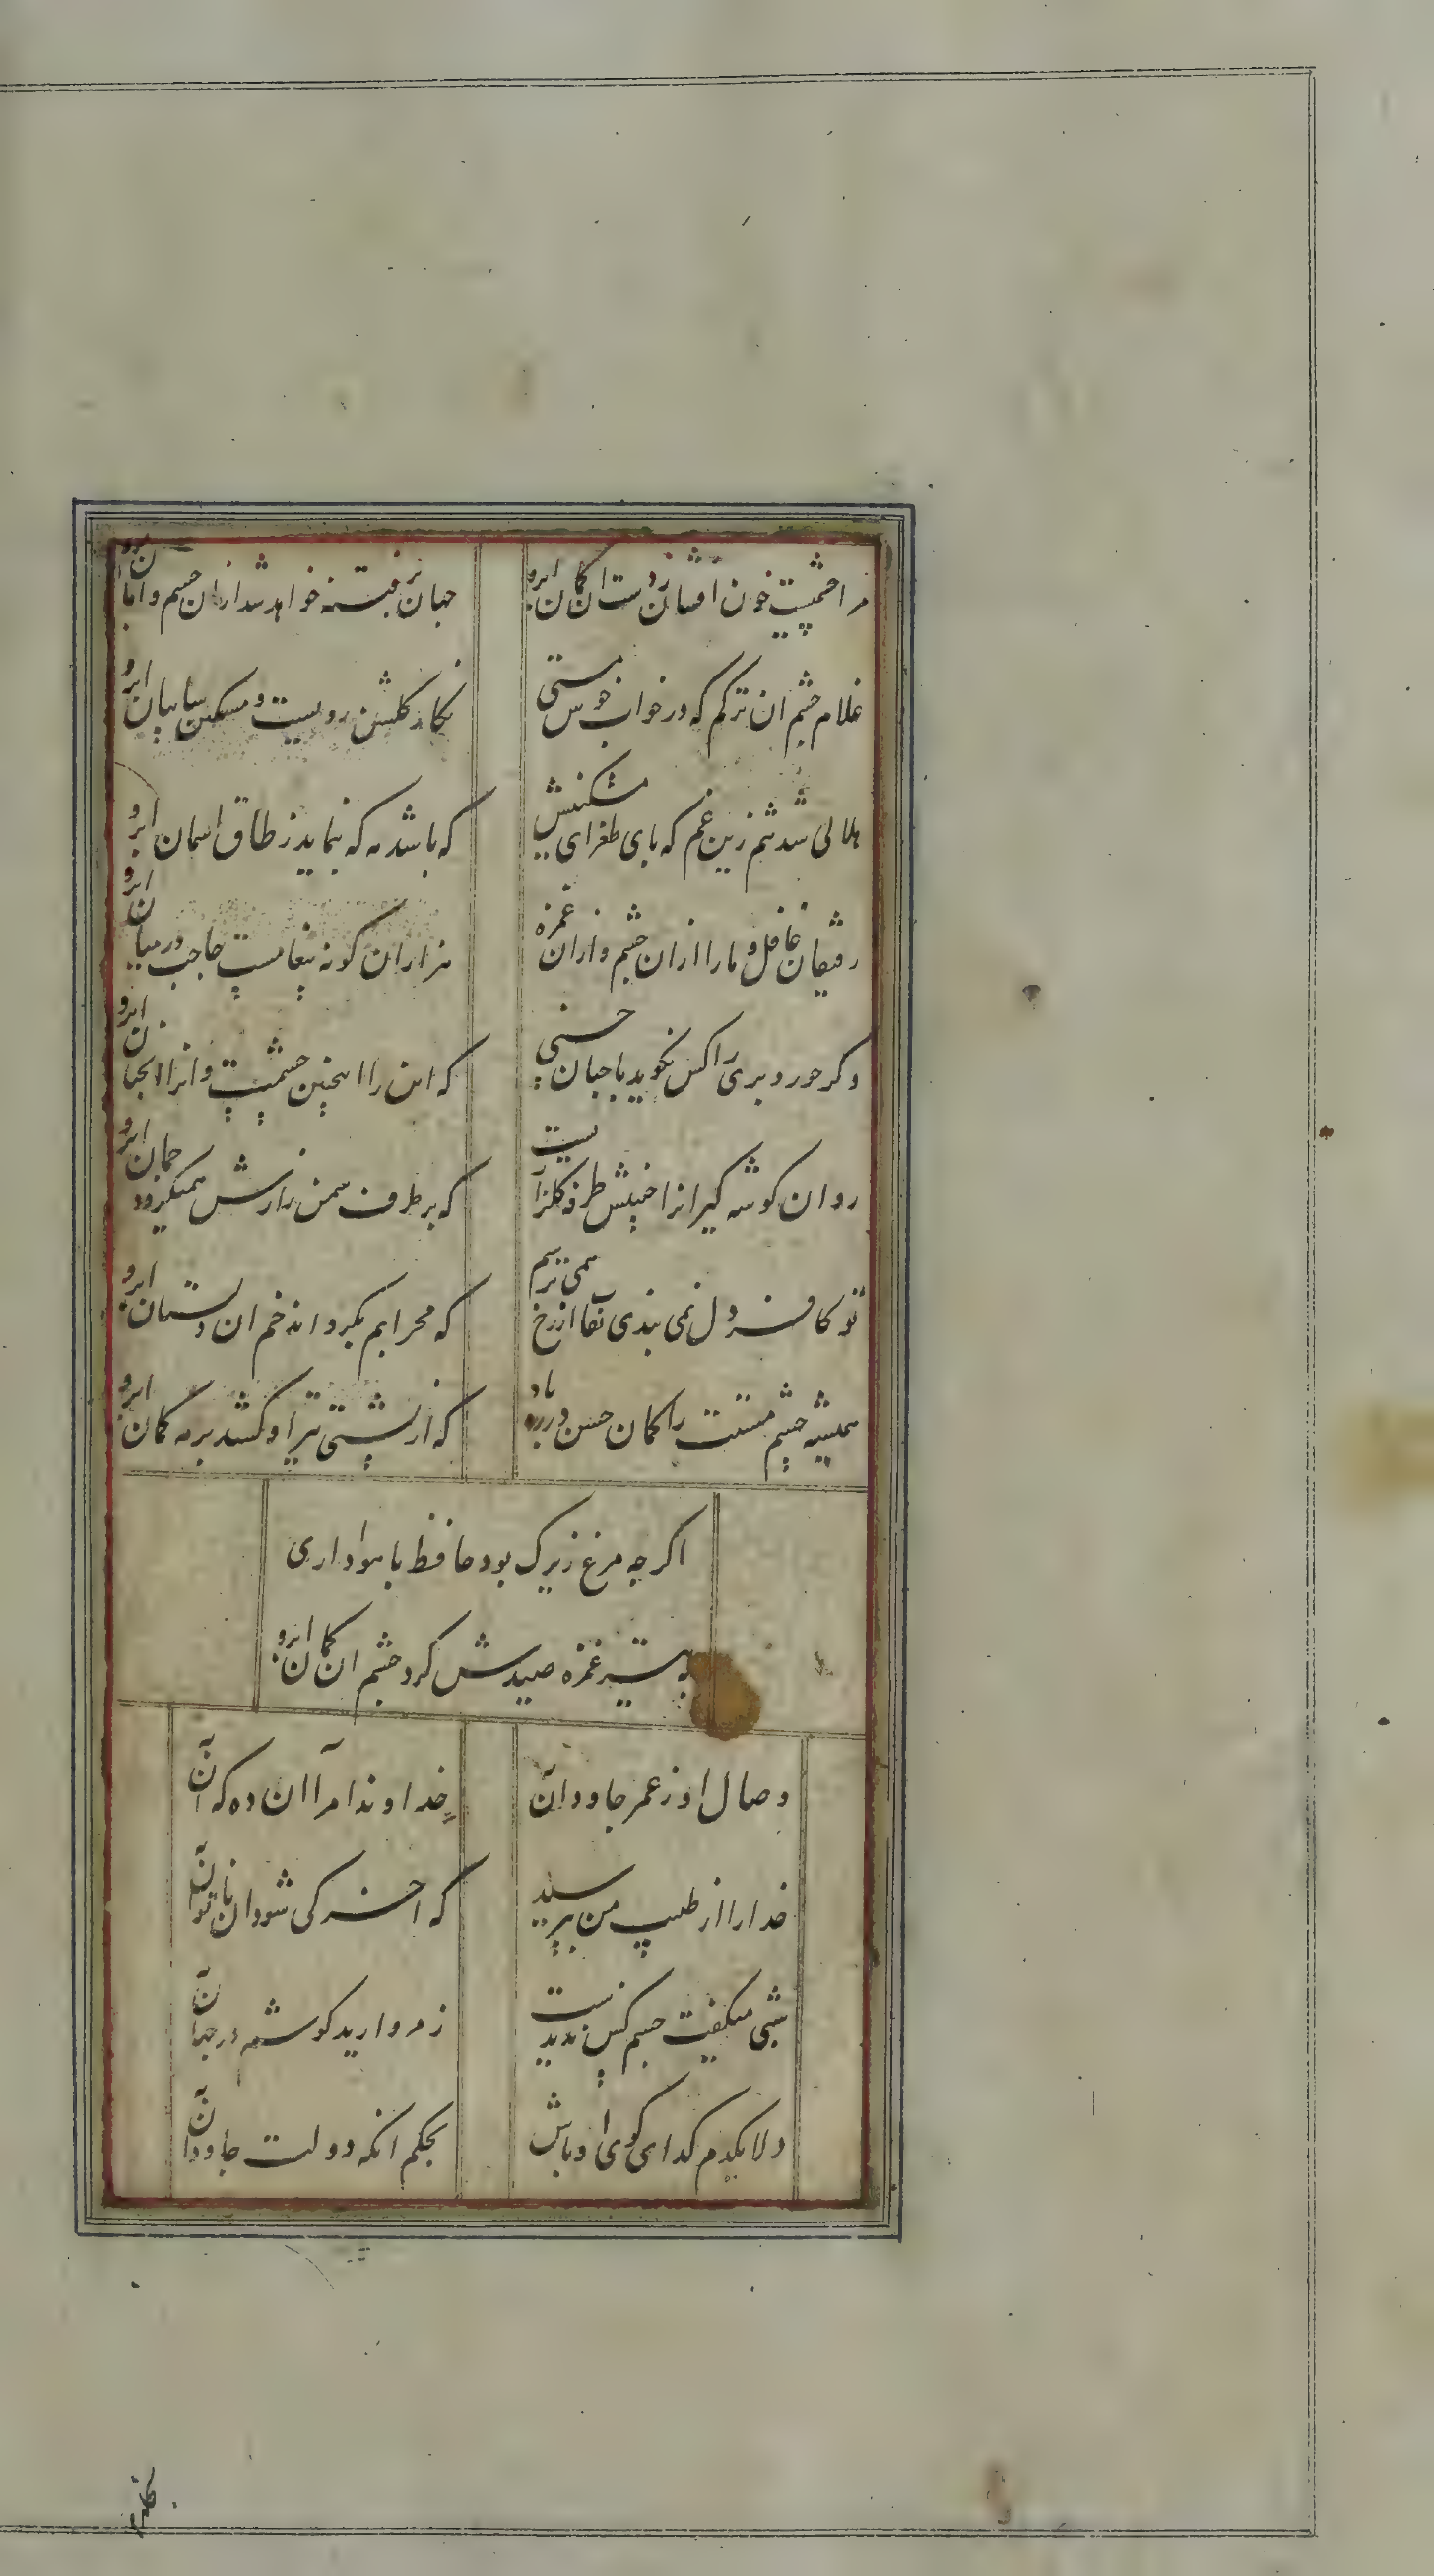 مرا چشمیست خون افشان ز دست ان کمان ابرو
جهان پر فتنه خواهد شد ازان چشم و ازان ابرو
غلام چشم ان ترکم که در خواب خوش مستی
نکارین کلشن رویست و مسکین سایبان ابرو
هلالی شد تنم زین غم که بای طغرای مشکینش
که باشد مه که بنماید ز طاق اسمان ابرو
رقیبان غافل و مارا ازان چشم و ازان غمزه
هزاران کونه پیغامست حاجب درمیان ابرو
دکر حور و بری را کس نکوید با جنان حسنی
که این را اینچنین چشمیست و انرا انجنان ابرو
روان کوشه کیرانرا جبینش طرفه کلزاریست
که بر طرف سمن زارش همیکردد جمان ابرو
تو کافر دل نمی بندی نقاب از رخ همی ترسم
که محرابم بکرداند خم ان دلستان ابرو
همیشه چشم مستت را کمان حسن در زه باد
که از پشتی تیر او کشد بر مه کمان ابرو
اکرچه مرغ زیرک بود حافظ با هواداری
به تیر غمزه صیدش کرد چشم ان کمان ابرو
وصال او ز عمر جاودان
خداوندا مرا ان ده که ان
خدارا از طبیب من بپرسید
که اخر کی شود ان ناتوان
شبی میکفت چشم کس ندیدست
ز مروارید کوشم در جهان
دلا دایم کدای کوی او باش
بحکم انکه دولت جاودان